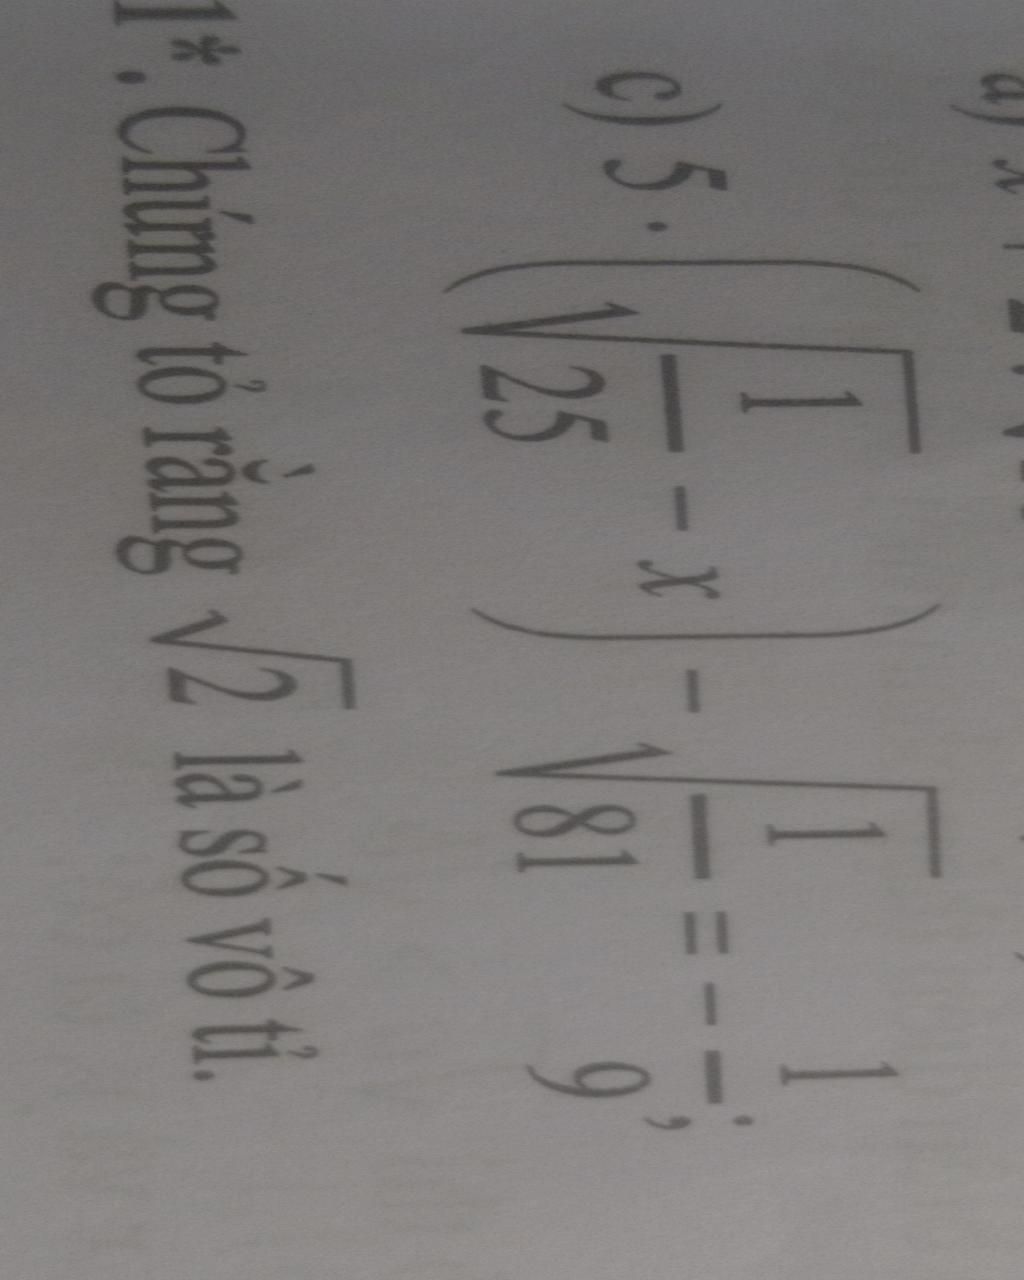 a) x
c) 5 . (√(1/25) - x) - √(1/81) = - 1/9;
1*. Chứng tỏ rằng √2 là số vô tỉ.